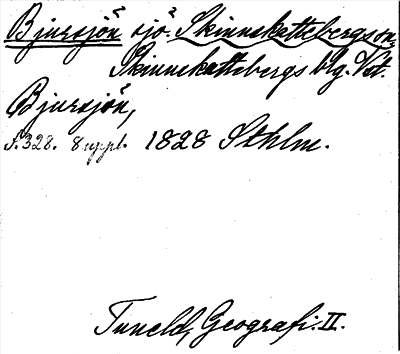 Bjursjön sjö. Skinnskattebergs sn,
Skinnskattebergs blg. Vst.
Bjursjön,
s. 328. 8 uppl. 1828 Sthlm.
Tuneld, Geografi. II.